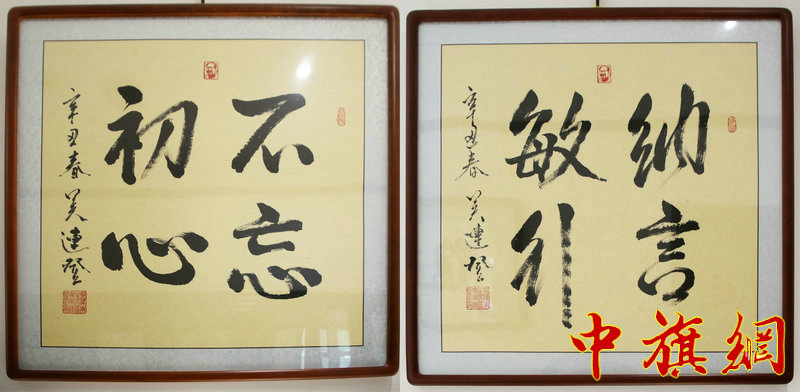 不忘
初心
辛丑春吴連登
納言
敏行
辛丑春吴連登
中旗網